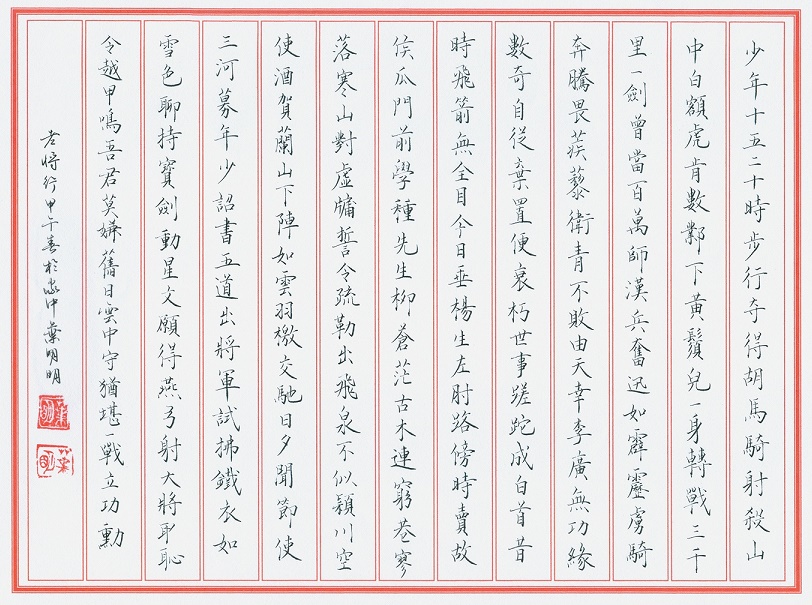 少年十五二十時步行奪得胡馬騎射殺山
中白額虎肯數鄴下黃鬚兒一身轉戰三千
里一劍曾當百萬師漢兵奮迅如霹靂虜騎
奔騰畏蒺藜衛青不敗由天幸李廣無功緣
數奇自從棄置便衰朽世事蹉跎成白首昔
時飛箭無全目今日垂楊生左肘路傍時賣故
侯瓜門前學種先生柳蒼茫古木連窮巷寥
落寒山對虛牖誓令疏勒出飛泉不似潁川空
使酒賀蘭山下陣如雲羽檄交馳日夕聞節使
三河募年少詔書五道出將軍試拂鐵衣如
雪色聊持寶劍動星文願得燕弓射大將恥
令越甲鳴吾君莫嫌舊日雲中守猶堪一戰立功勳
老將行甲午春於中葉明明